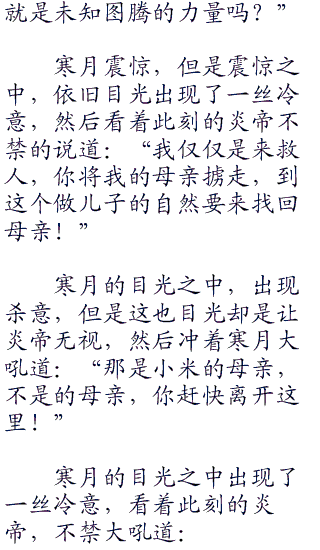 就是未知图腾的力量吗？”
寒月震惊，但是震惊之
中，依旧目光出现了一丝冷
意，然后看着此刻的炎帝不
禁的说道：“我仅仅是来救
人，你将我的母亲掳走，到
这个做儿子的自然要来找回
母亲！”
寒月的目光之中，出现
杀意，但是这也目光却是让
炎帝无视，然后冲着寒月大
吼道：“那是小米的母亲，
不是的母亲，你赶快离开这
里！”
寒月的目光之中出现了
一丝冷意，看着此刻的炎
帝，不禁大吼道：